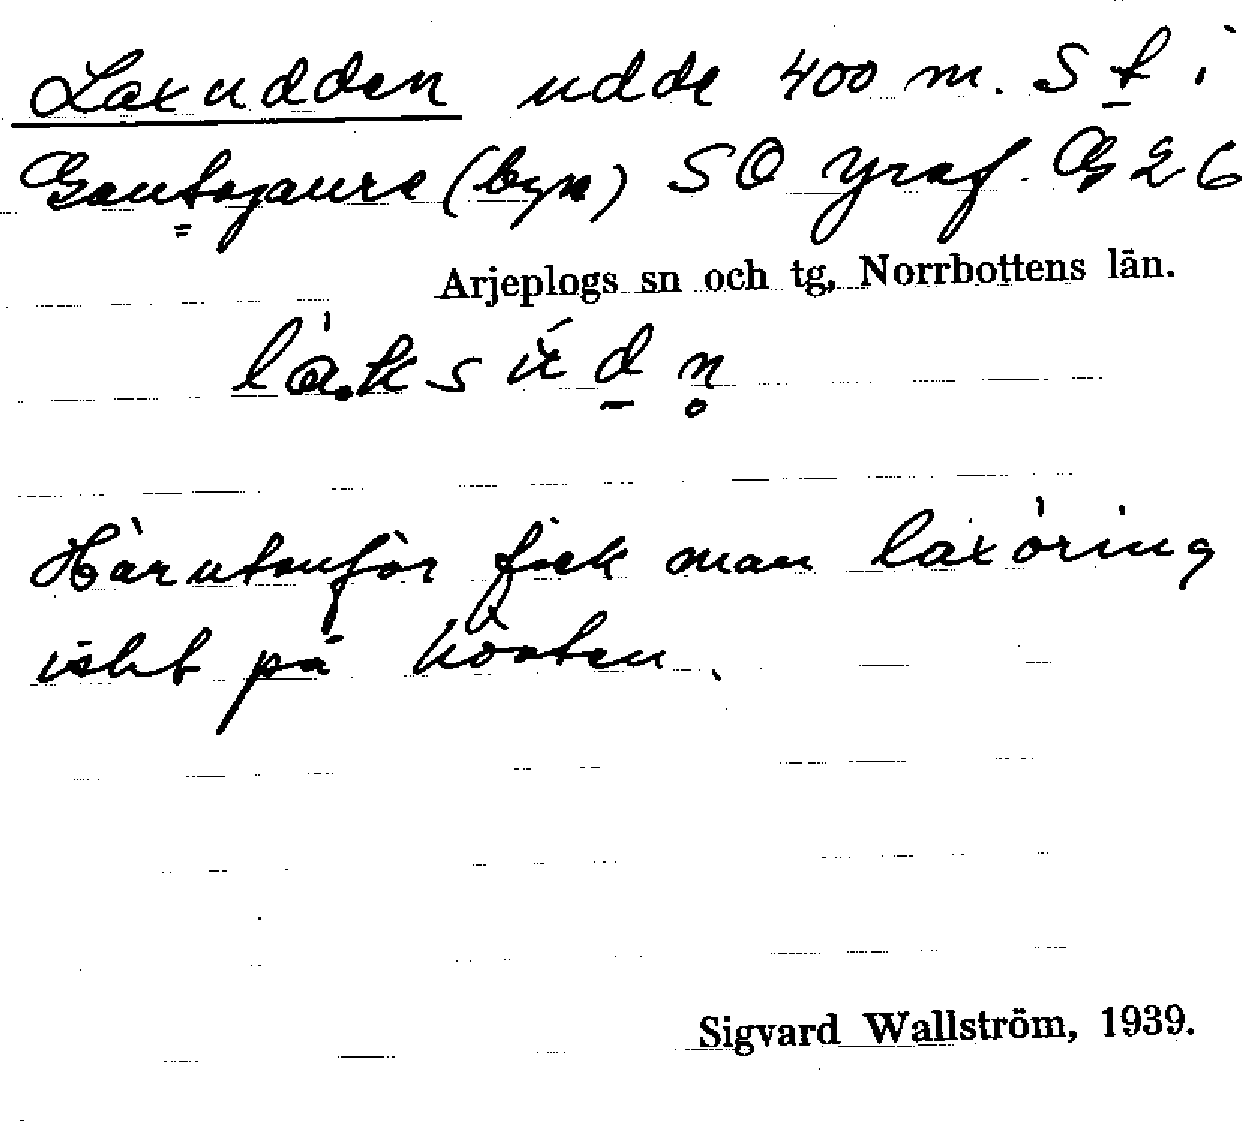 Laxudden udde 400 m. S t i
Gautojaure (byn) SO graf. G 26
Arjeplogs sn och tg, Norrbottens län.
Härutanför fick man laxöring
på hösten.
Sigvard Wallström, 1939.